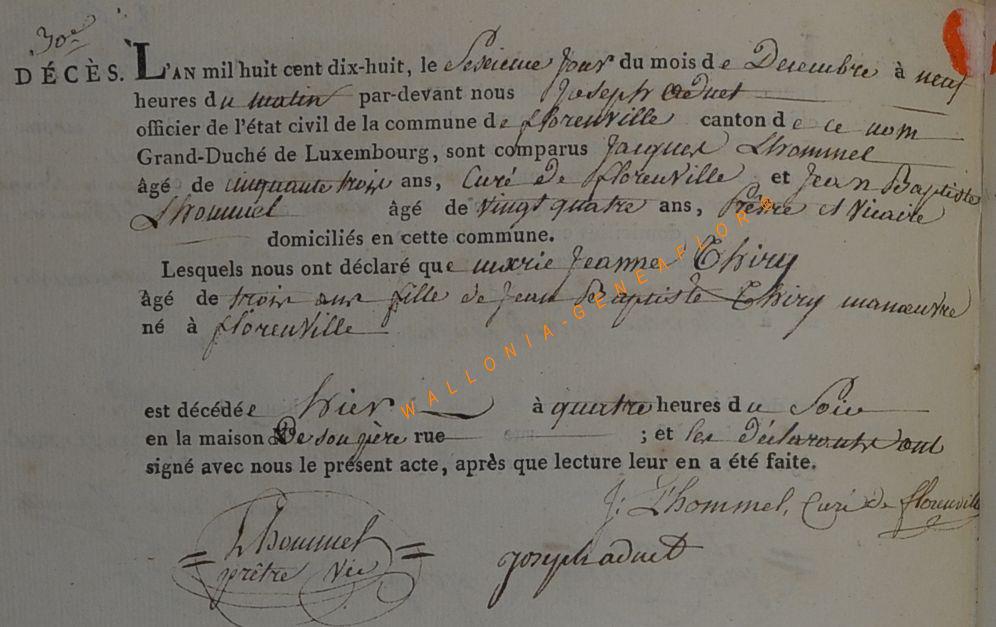 30e
DÉCÈS. L'AN mil huit cent dix-huit, le Seizieme Jour du mois de Decembre à neuf
heures du matin par-devant nous Joseph Adnet
officier de l'état civil de la commune de florenville canton de ce nom
Grand-Duché de Luxembourg, sont comparus Jacques Lhommel
âgé de cinquante trois ans, Curé de florenville et Jean Baptiste
Lhommel âgé de vingt quatre ans, Prêtre et Vicaire
domiciliés en cette commune.
Lesquels nous ont déclaré que marie Jeanne Thiry
âgé de trois ans fille de Jean Baptiste Thiry manœuvre
né à florenville
est décédée hier à quatre heures du Soir
en la maison De son père rue ; et les déclarants ont
signé avec nous le présent acte, après que lecture leur en a été faite.
J: Lhommel, Curé de florenville
Lhommel
prêtre Vic
joseph adnet
WALLONIA-GENEAFLOR